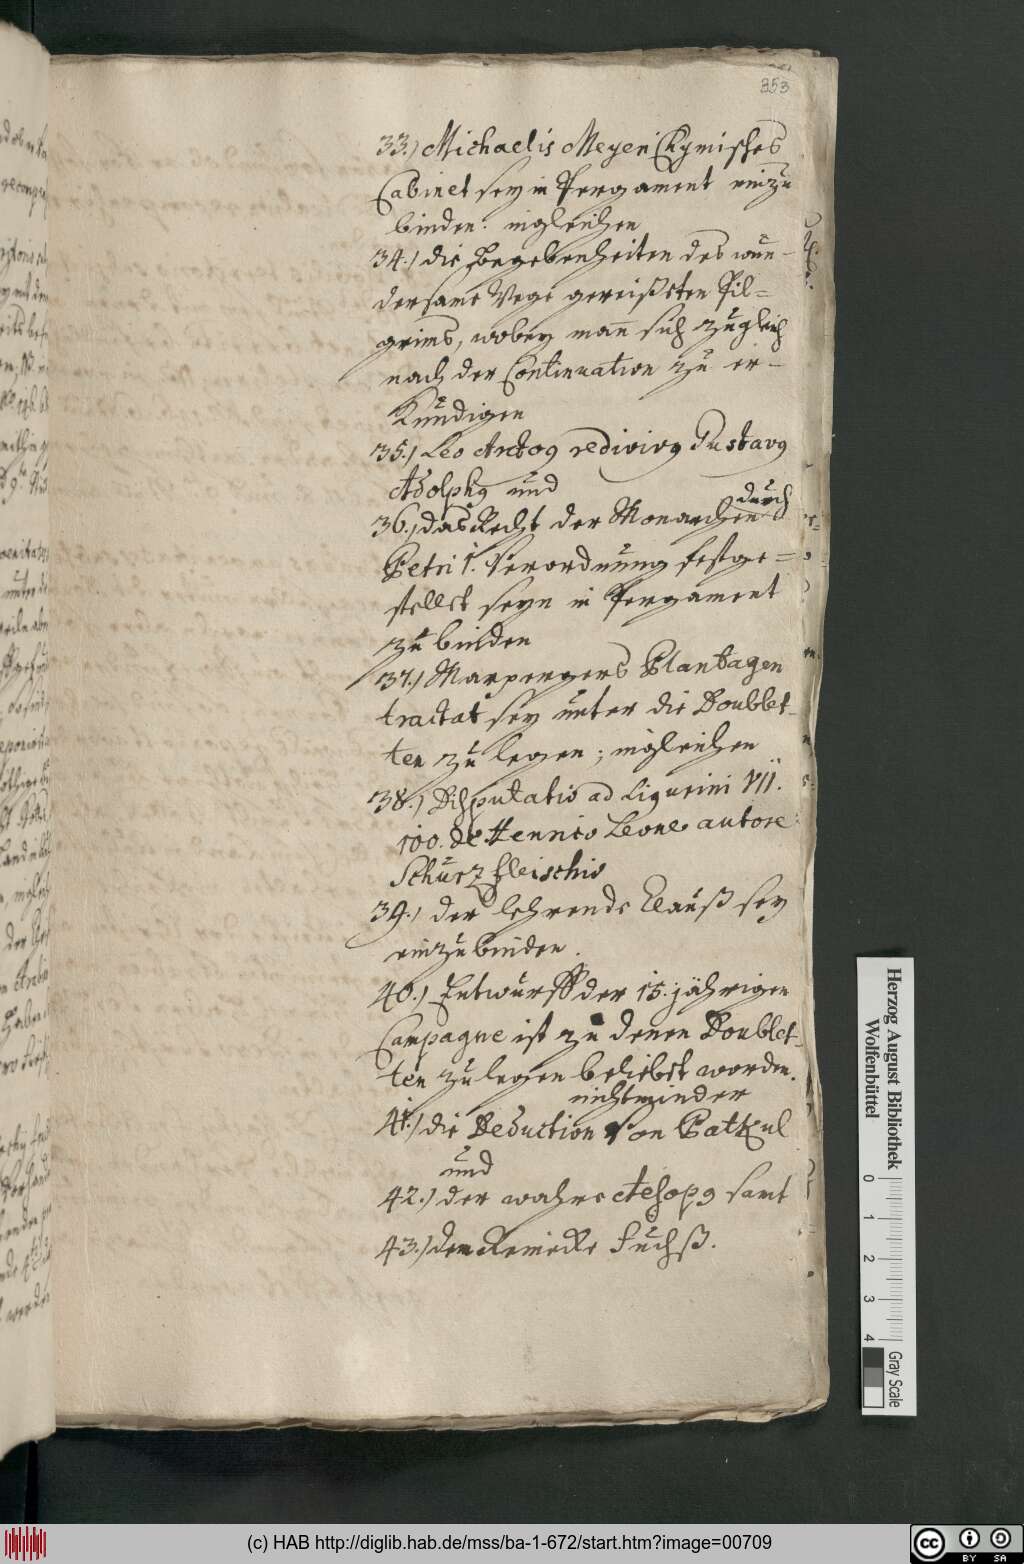 853
33.) Michaelis Meyeri Chymisches
Cabinet sey in Pergament einzu
binden. ingleichen
34.) die Begebenheiten des wun-
dersame Wege gereißeten Pil=
grims, wobey man sich zugleich
nach der Continuation zu er-
kundigen
35.) Leo Arctoq redivivq Gustavq
Adolphq und
36.) das Recht der Monarchen durch
Petri I. Verordnung festge=
stellet seyn in Pergament
zu binden
37.) Marpergers Plantagen
tractat sey unter die Doublet-
ten zu legen; ingleichen
38.) Disputatio ad Ligurini VII.
100. de Henrico Leone autore
Schurzfleischio
39.) der lehrende Clauß sey
einzubinden.
40.) Entwurff der 15. jährigen
Campagne ist zu denen Doublet-
ten zu legen beliebet worden.
nicht minder
41.) die Deduction von Patkul
und
42.) der wahre Aesopq samt
43.) dem Reineke Fuchß.
Herzog August Bibliothek
Wolfenbüttel
0 1 2 3 4
Gray Scale
(c) HAB http://diglib.hab.de/mss/ba-1-672/start.htm?image=00709
cc BY SA